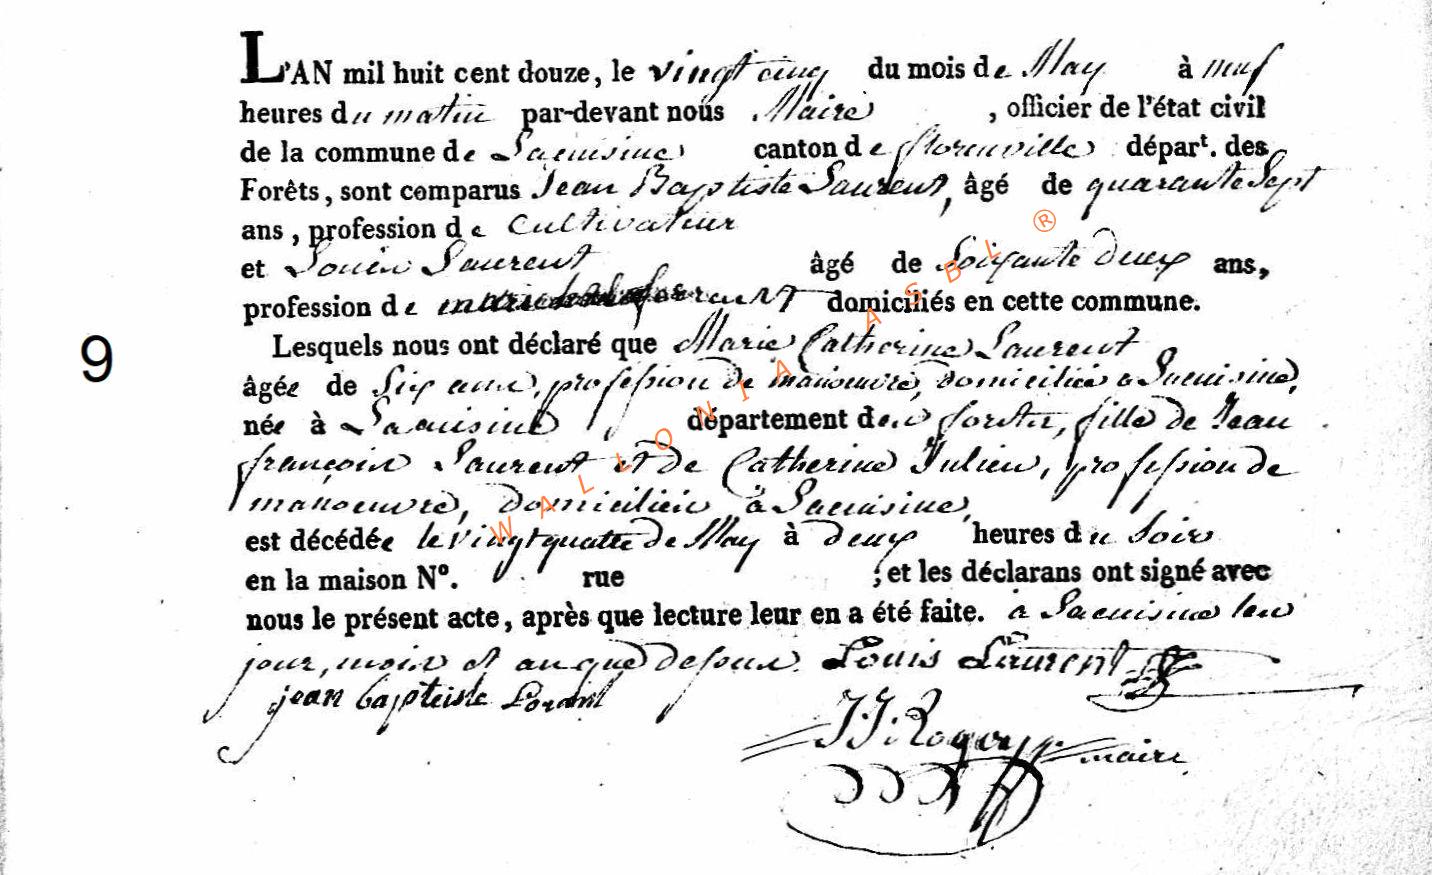 L'AN mil huit cent douze, le vingt cinq du mois de May à neuf
heures du matin par-devant nous Maire, officier de l'état civil
de la commune de Lacuisine canton de florenville départ. des
Forêts, sont comparus Jean Baptiste Laurent, âgé de quarante Sept
ans, profession de Cultivateur
et Louis Laurent âgé de Soixante deux ans,
profession de domiciliés en cette commune.
Lesquels nous ont déclaré que Marie Catherine Laurent
âgée de Six ans, profession de manoeuvre, domiciliée a Lacuisine,
née à Lacuisine département des forets, fille de Jean
françois Laurent et de Catherine Julien, profession de
manoeuvre, domiciliés à Lacuisine,
est décédée le vingt quatre de May à deux heures du soir
en la maison N°. rue ; et les déclarans ont signé avec
nous le présent acte, après que lecture leur en a été faite. à Lacuisine les
jour, mois et an que dessus. Louis Laurent
jean baptiste Lorant
J J Rogory maire
9
WALLONIA ASBL ®